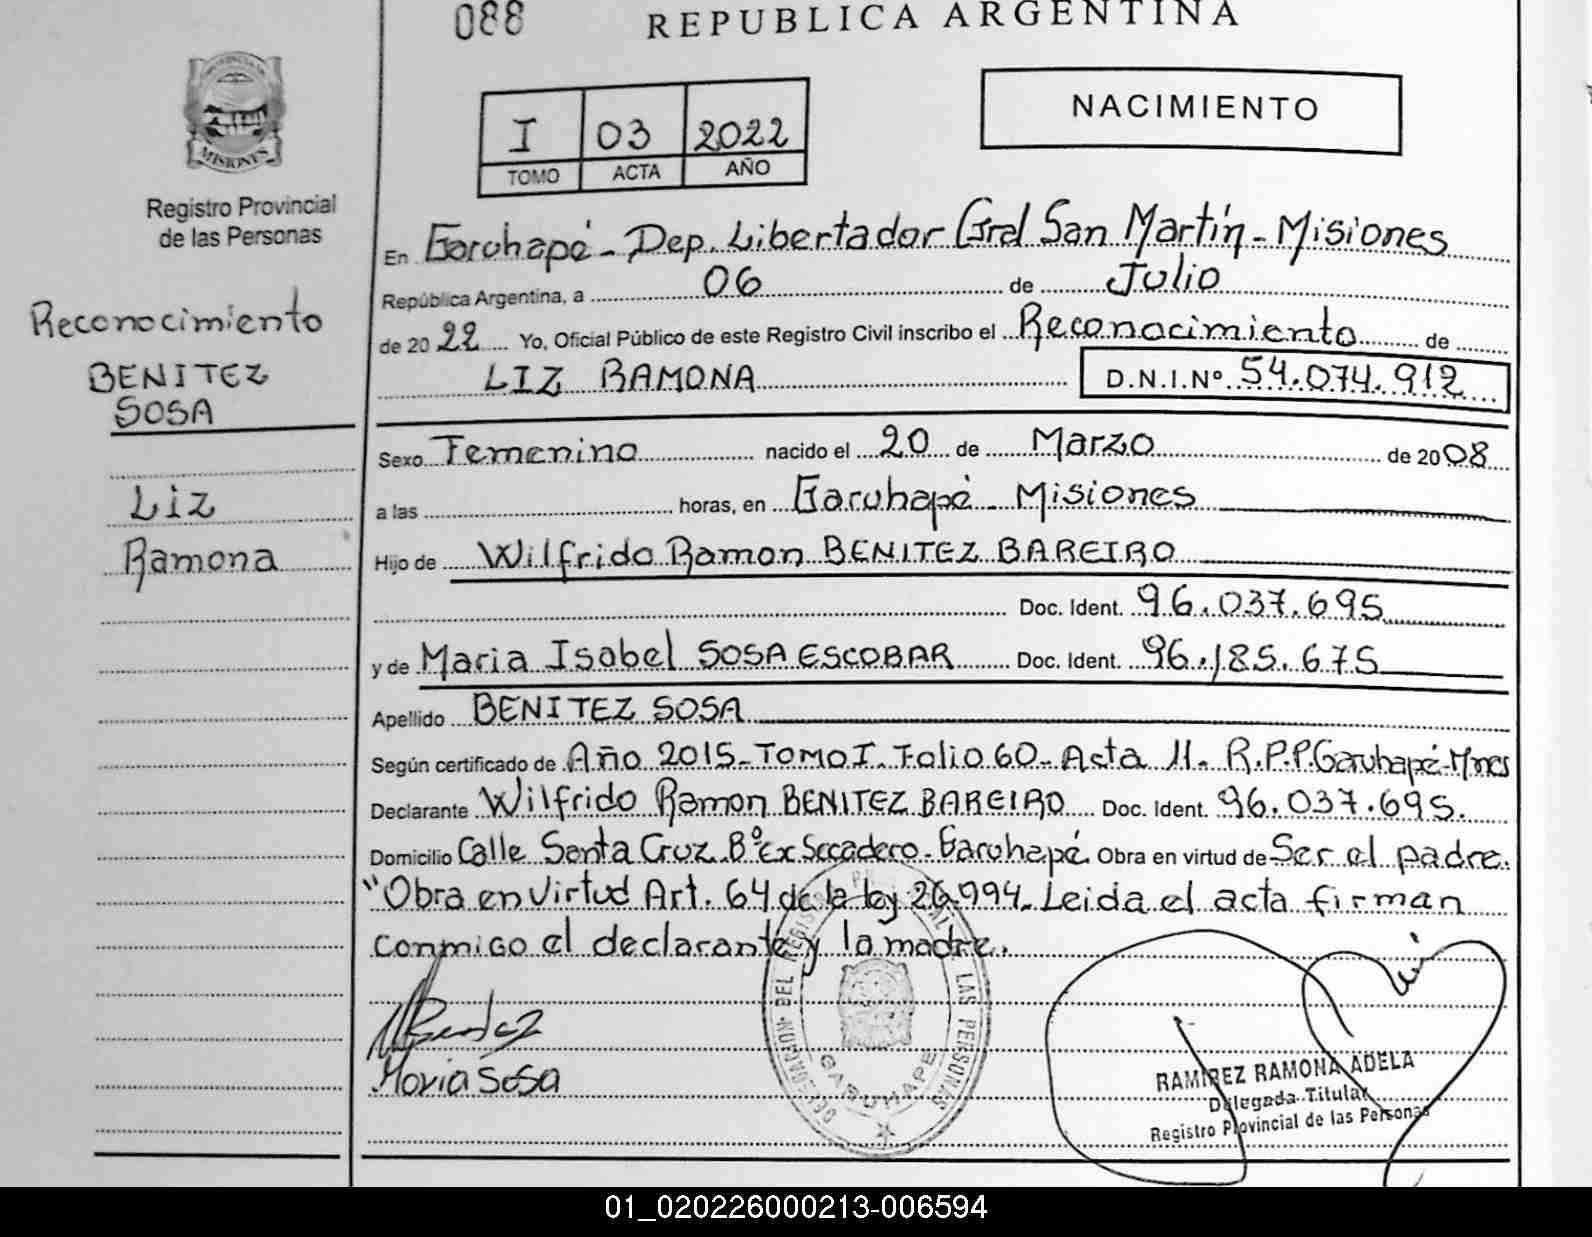 088
REPUBLICA ARGENTINA
MISIONES
Registro Provincial
de las Personas
I 03 2022
TOMO ACTA AÑO
NACIMIENTO
Reconocimiento
BENITEZ
SOSA
Liz
Ramona
En Garuhapé - Dep. Libertador Gral San Martín - Misiones
República Argentina, a 06 de Julio
de 2022 Yo, Oficial Público de este Registro Civil inscribo el Reconocimiento de
LIZ RAMONA D.N.I.Nº 54.074.912
Sexo Femenino nacido el 20 de Marzo de 2008
a las horas, en Garuhapé - Misiones
Hijo de Wilfrido Ramon BENITEZ BAREIRO
Doc. Ident. 96.037.695
y de Maria Isabel SOSA ESCOBAR Doc. Ident. 96.185.675
Apellido BENITEZ SOSA
Según certificado de Año 2015- TOMO I. Folio 60- Acta 11- R.P.P. Garuhapé-Mnes
Declarante Wilfrido Ramon BENITEZ BAREIRO Doc. Ident. 96.037.695.
Domicilio Calle Santa Cruz Bº Ex Secadero- Garuhapé Obra en virtud de Ser el padre.
"Obra en Virtud Art. 64 de la ley 26.994. Leida el acta firman
conmigo el declarante y la madre.
Maria Sosa
DELEGACION DEL REGISTRO PROVINCIAL DE LAS PERSONAS
GARUHAPE
RAMIREZ RAMONA ADELA
Delegada Titular
Registro Provincial de las Personas
01_020226000213-006594